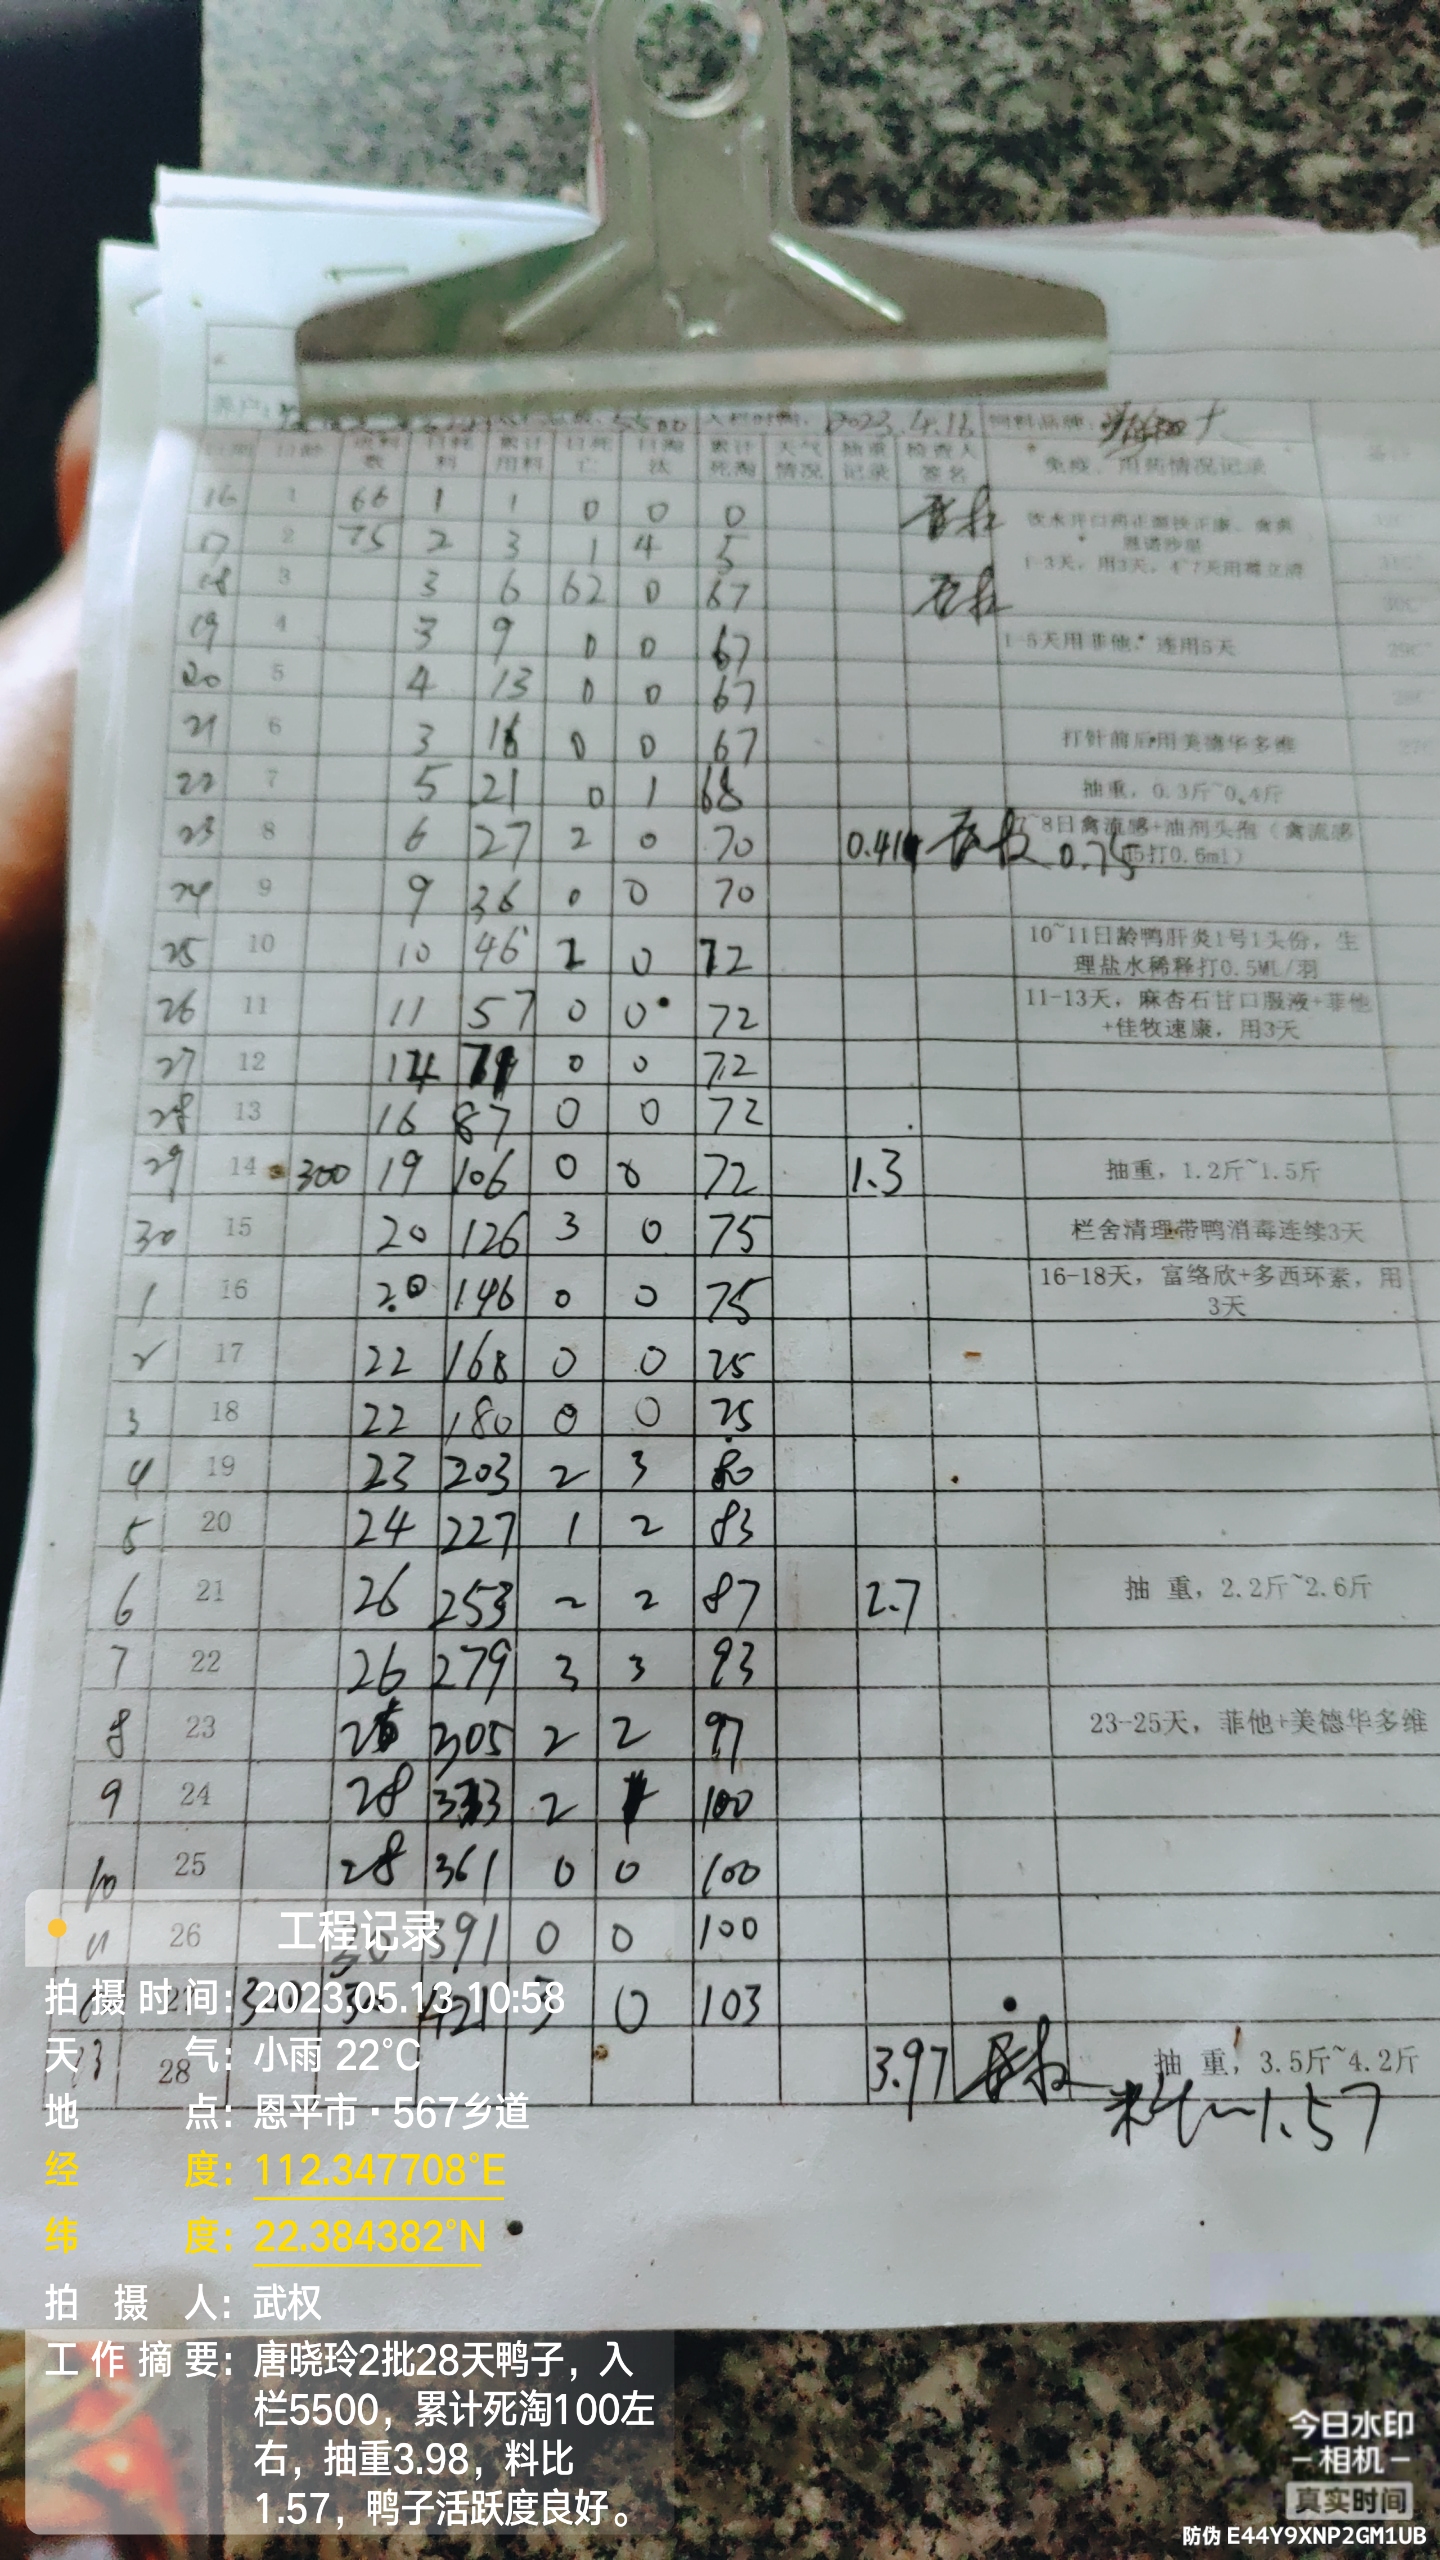 5500 入栏时间: 2023.4.16 饲料品牌:
日龄 日耗料 累计用料 日死亡 日淘汰 累计死淘 天气情况 抽重记录 检查人签名 免疫、用药情况记录
16 1 66 1 1 0 0 0
17 2 75 2 3 1 4 5
1-3天,用3天,
18 3 3 6 62 0 67
19 4 3 9 0 0 67 1-5天用菲他,连用5天
20 5 4 13 0 0 67
21 6 3 16 0 0 67 打针前后用美德华多维
22 7 5 21 0 1 68 抽重,0.3斤~0.4斤
23 8 6 27 2 0 70 0.41 0.75 ~8日禽流感+油剂头孢(禽流感
打0.6ml)
24 9 9 36 0 0 70
25 10 10 46 2 0 72 10~11日龄鸭肝炎1号1头份,生
理盐水稀释打0.5ML/羽
26 11 11 57 0 0 72 11-13天,麻杏石甘口服液+菲他
+佳牧速康,用3天
27 12 14 71 0 0 72
28 13 16 87 0 0 72
29 14 300 19 106 0 0 72 1.3 抽重,1.2斤~1.5斤
30 15 20 126 3 0 75 栏舍清理带鸭消毒连续3天
1 16 20 146 0 0 75 16-18天,富络欣+多西环素,用
3天
2 17 22 168 0 0 75
3 18 22 180 0 0 75
4 19 23 203 2 3 80
5 20 24 227 1 2 83
6 21 26 253 2 2 87 2.7 抽 重,2.2斤~2.6斤
7 22 26 279 3 3 93
8 23 26 305 2 2 97 23-25天,菲他+美德华多维
9 24 28 333 2 1 100
10 25 28 361 0 0 100
11 26 30 391 0 0 100
27 30 421 3 0 103
13 28 3.97 抽 重,3.5斤~4.2斤
料比1.57
工程记录
拍摄时间:2023.05.13 10:58
天气:小雨 22°C
地点:恩平市·567乡道
经度:112.347708°E
纬度:22.384382°N
拍摄人:武权
工作摘要:唐晓玲2批28天鸭子,入
栏5500,累计死淘100左
右,抽重3.98,料比
1.57,鸭子活跃度良好。
今日水印
相机
真实时间
防伪 E44Y9XNP2GM1UB